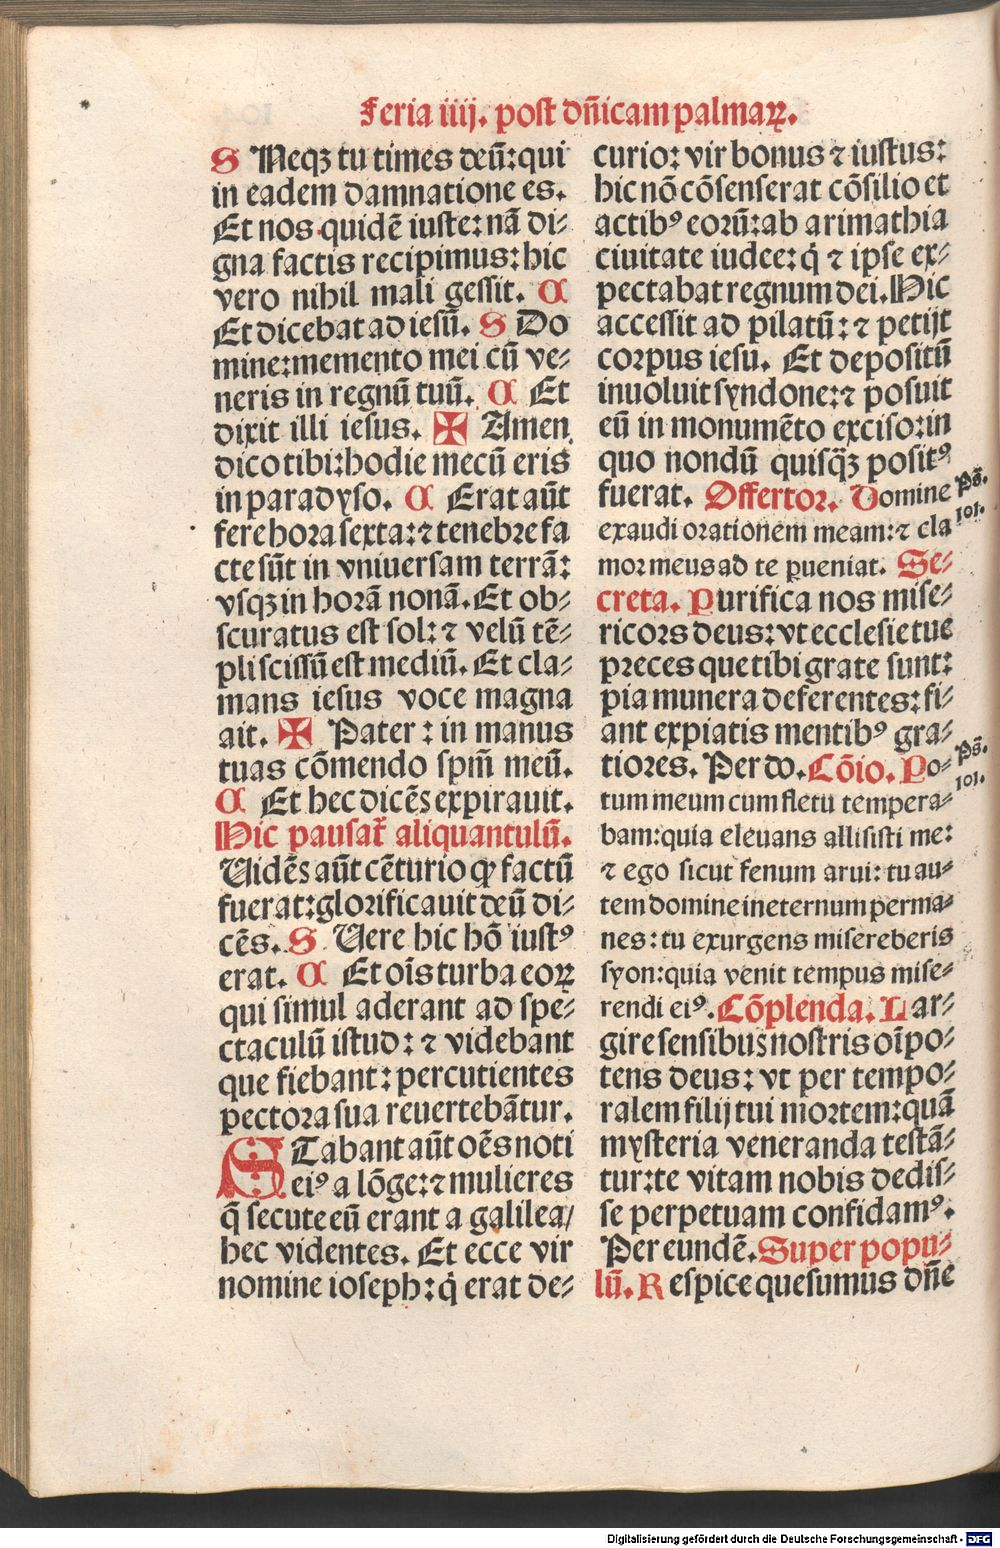 Feria iiij. post dñicam palmaꝝ.
S Neqꝫ tu times deū: qui
in eadem damnatione es.
Et nos quidē iuste: nā di⸗
gna factis recipimus: hic
vero nihil mali gessit. C
Et dicebat ad iesū. S Do
mine: memento mei cū ve⸗
neris in regnū tuū. C Et
dixit illi iesus. ✠ Amen
dico tibi: hodie mecū eris
in paradyso. C Erat aūt
fere hora sexta: ⁊ tenebre fa
cte sūt in vniuersam terrā:
vsqꝫ in horā nonā. Et ob⸗
scuratus est sol: ⁊ velū tē⸗
pli scissū est mediū. Et cla⸗
mans iesus voce magna
ait. ✠ Pater: in manus
tuas cōmendo spm̄ meū.
C Et hec dicēs expirauit.
Hic pausat̄ aliquantulū.
Uidēs aūt cēturio ꝙ factū
fuerat: glorificauit deū di⸗
cēs. S Uere hic hō iustꝰ
erat. C Et oīs turba eoꝝ
qui simul aderant ad spe⸗
ctaculū istud: ⁊ videbant
que fiebant: percutientes
pectora sua reuertebātur.
STabant aūt oēs noti
eiꝰ a lōge: ⁊ mulieres
q̄ secute eū erant a galilea/
hec videntes. Et ecce vir
nomine ioseph: q̇ erat de⸗
curio: vir bonus ⁊ iustus:
hic nō cōsenserat cōsilio et
actibꝰ eorū: ab arimathia
ciuitate iudee: q̇ ⁊ ipse ex⸗
pectabat regnum dei. Hic
accessit ad pilatū: ⁊ petijt
corpus iesu. Et depositū
inuoluit syndone: ⁊ posuit
eū in monumēto exciso: in
quo nondū quisq̄ꝫ positꝰ
fuerat. Offertor. Domine
exaudi orationem meam: ⁊ cla
mor meus ad te ꝑueniat. Se⸗
creta. Purifica nos mise⸗
ricors deus: vt ecclesie tue
preces que tibi grate sunt:
pia munera deferentes: fi⸗
ant expiatis mentibꝰ gra⸗
tiores. Per do. Cōio. Po⸗
tum meum cum fletu tempera⸗
bam: quia eleuans allisisti me:
⁊ ego sicut fenum arui: tu au⸗
tem domine in eternum perma⸗
nes: tu exurgens misereberis
syon: quia venit tempus mise⸗
rendi eiꝰ. Cōplenda. Lar⸗
gire sensibus nostris oīpo⸗
tens deus: vt per tempo⸗
ralem filij tui mortem: quā
mysteria veneranda testā⸗
tur: te vitam nobis dedis⸗
se perpetuam confidamꝰ.
Per eundē. Super popu⸗
lū. Respice quesumus dn̄e
Ps̄.
101.
Ps̄.
101.
Digitalisierung gefördert durch die Deutsche Forschungsgemeinschaft - DFG